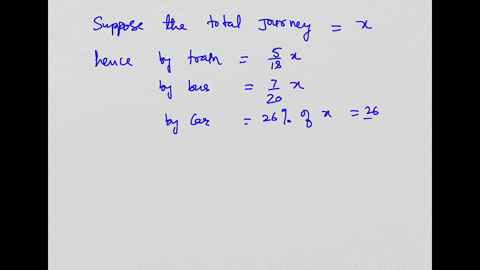 Suppose the total journey = x
hence by train = 5/18 x
by bus = 7/20 x
by car = 26% of x = 26